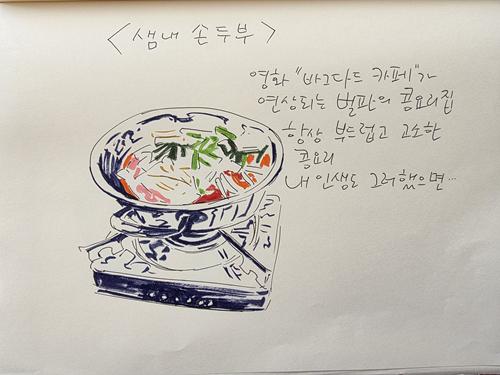 <샘내 손두부>
영화 "바그다드 카페"가
연상되는 벌판의 콩요리집
항상 부드럽고 고소한
콩요리
내 인생도 그러했으면...